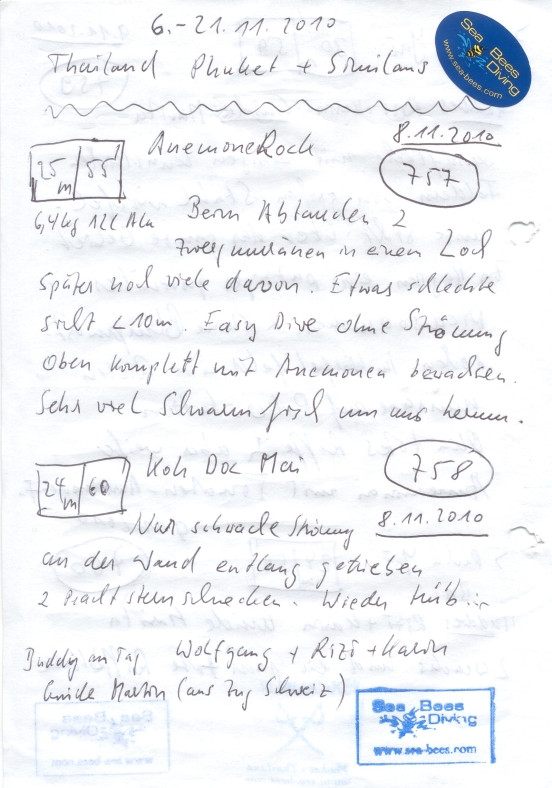 6.-21.11.2010
Sea Bees Diving
www.sea-bees.com
Thailand Phuket + Similans
8.11.2010
25 m 55'
AnemoneRock
757
6,4kg 12L Alu Beim Abtauchen 2
zwergmuränen in einem Loch
später noch viele davon. Etwas schlechte
sicht <10m. Easy Dive ohne Strömung
Oben komplett mit Anemonen bewachsen.
Sehr viel Schwarmfisch um uns herum.
24 m 60'
Koh Doc Mai
758
Nur schwache Strömung 8.11.2010
an der Wand entlang getrieben
2 Prachtsternschnecken. Wieder trüb
Buddy am Tag Wolfgang + Rizi + Karin
Guide Martin (aus Zug Schweiz)
Sea Bees
Diving
www.sea-bees.com